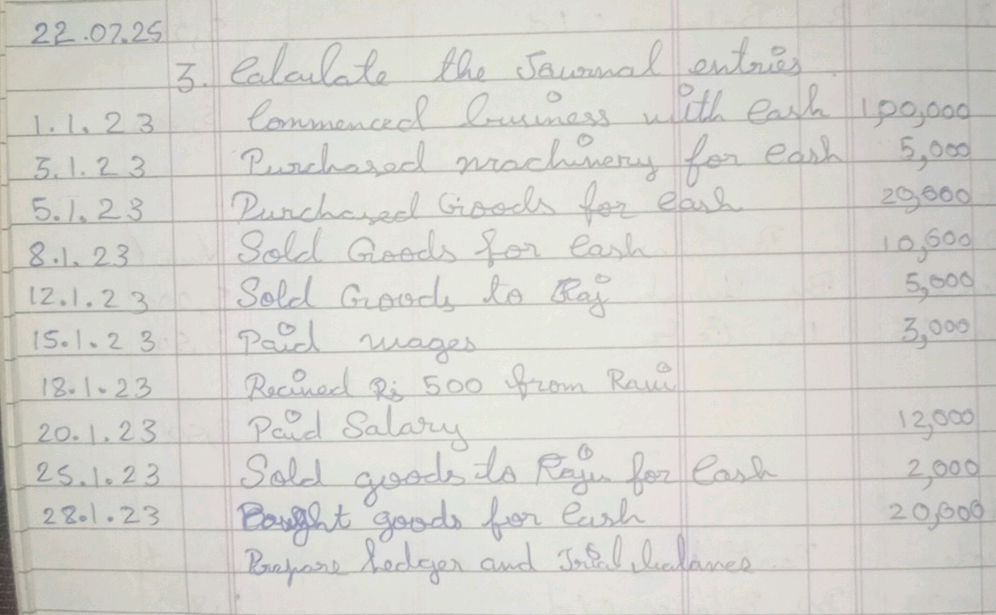 22.07.25
3. Calculate the Journal entries
1.1.23 Commenced business with Cash 1,00,000
3.1.23 Purchased machinery for Cash 5,000
5.1.23 Purchased Goods for Cash 20,000
8.1.23 Sold Goods for Cash 10,600
12.1.23 Sold Goods to Raj 5,000
15.1.23 Paid wages 3,000
18.1.23 Recived Rs 500 from Ravi
20.1.23 Paid Salary 12,000
25.1.23 Sold goods to Raju for Cash 2,000
28.1.23 Bought goods for Cash 20,000
Prepare Ledger and Trial balance